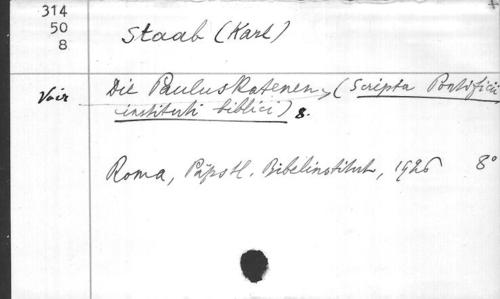 314
50
8
Staab (Karl)
Voir
Die Pauluskatenen, (Scripta Pontificii
instituti biblici) 8.
Roma, Päpstl. Bibelinstitut, 1926 8°